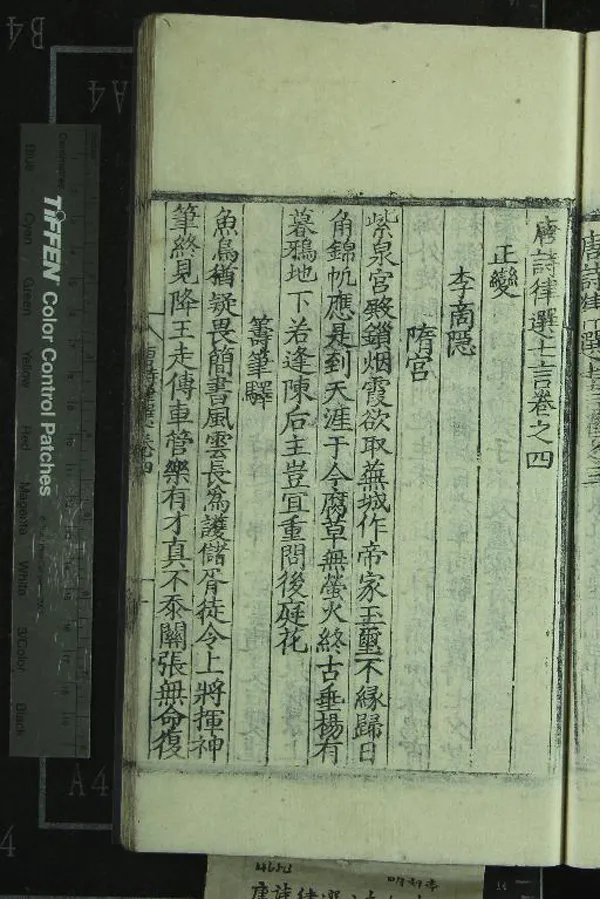 唐詩律選七言卷之四
正變
李商隱
隋宮
紫泉宮殿鎻烟霞欲取蕪城作帝家玉璽不緣歸日
角錦帆應是到天涯于今腐草無螢火終古垂楊有
暮鴉地下若逢陳后主豈宜重問後庭花
籌筆驛
魚鳥猶疑畏簡書風雲長爲護儲胥徒令上將揮神
筆終見降王走傳車管樂有才真不忝關張無命復
唐詩律選 卷四
TIFFEN Color Control Patches
Centimetres
Blue
Cyan
Green
Yellow
Red
Magenta
White
3/Color
Black
B4
A4
A4
4